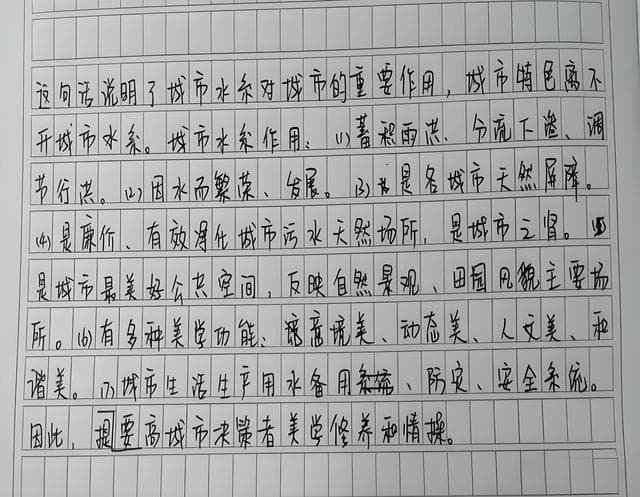 这句话说明了城市水系对城市的重要作用，城市特色离不
开城市水系。城市水系作用：(1)蓄积雨洪、分流下渗、调
节行洪。(2)因水而繁荣、发展。(3)是各城市天然屏障。
(4)是廉价、有效净化城市污水天然场所，是城市之肾。(5)
是城市最美好公共空间，反映自然景观、田园风貌主要场
所。(6)有多种美学功能、意境美、动态美、人文美、和
谐美。(7)城市生活生产用水备用系统、防灾、安全系统。
因此，提要高城市决策者美学修养和情操。